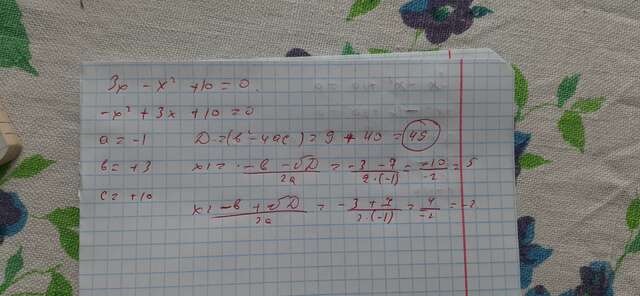 3x - x² + 10 = 0.
-x² + 3x + 10 = 0
a = -1 D = (b² - 4ac) = 9 + 40 = 49
b = +3 x₁ = -b - √D / 2a = -3 - 7 / 2·(-1) = -10 / -2 = 5
c = +10
x₂ = -b + √D / 2a = -3 + 7 / 2·(-1) = 4 / -2 = -2